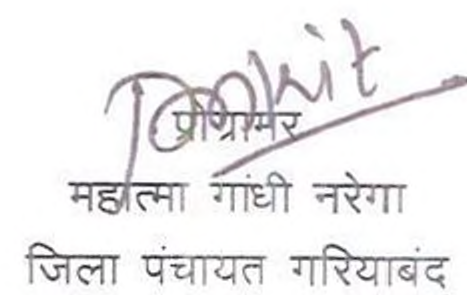 प्रोग्रामर
महात्मा गांधी नरेगा
जिला पंचायत गरियाबंद